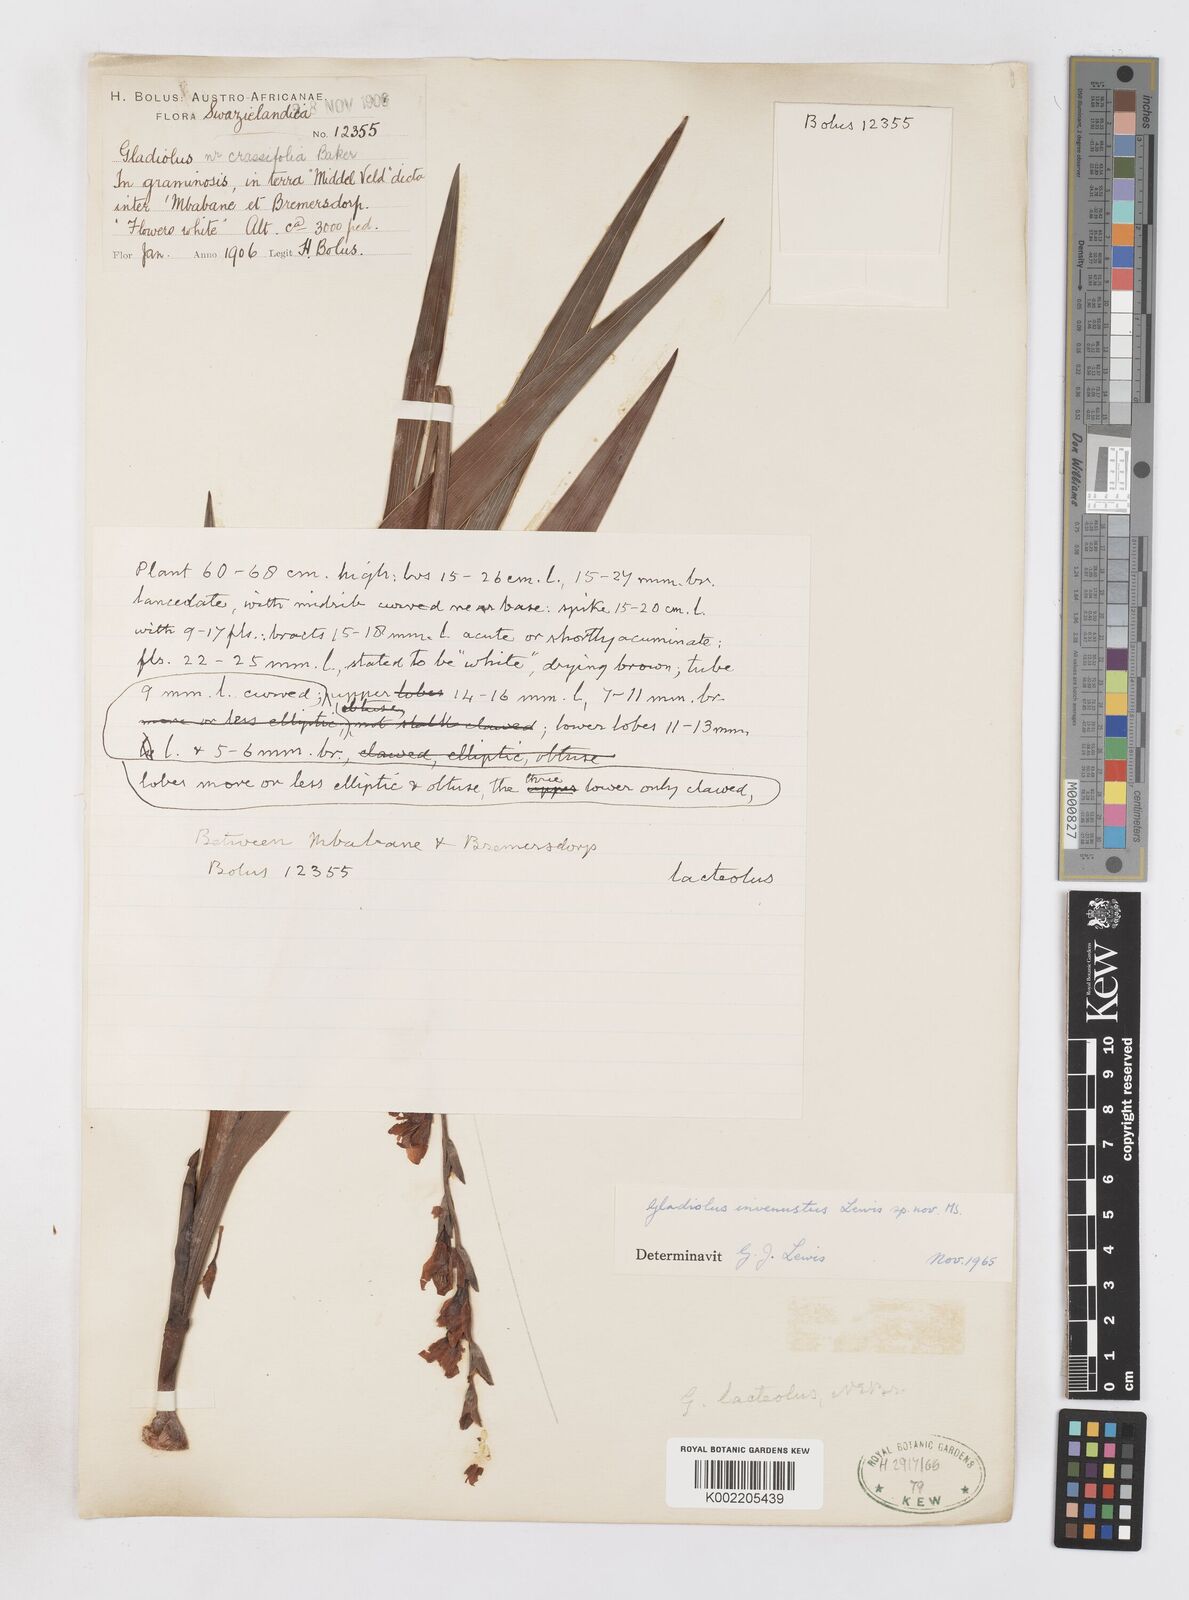 H. BOLUS: AUSTRO-AFRICANAE
NOV 190
FLORA Swazielandica
No. 12355
Gladiolus nr crassifolia Baker
In graminosis, in terra "Middel Veld" dicta
inter 'Mbabane et Bremersdorp.
"Flowers white" Alt. ca 3000 ped.
Flor Jan. Anno 1906 Legit H. Bolus.
Bolus 12355
Plant 60-68 cm. high: lvs 15-26 cm. l., 15-27 mm. br.
lanceolate, with midrib curved near base: spike 15-20 cm. l.
with 9-17 fls.: bracts 15-18 mm. l. acute or shortly acuminate:
fls. 22-25 mm. l., stated to be "white", drying brown; tube
9 mm. l. curved; upper lobes 14-16 mm. l, 7-11 mm. br.
obtuse
more or less elliptic, not clawed; lower lobes 11-13 mm.
l. & 5-6 mm. br., clawed, elliptic, obtuse
three
lobes more or less elliptic & obtuse, the upper lower only clawed,
Between Mbabane & Bremersdorp
Bolus 12355
lacteolus
Gladiolus invenustus Lewis sp. nov. Ms.
Determinavit G. J. Lewis Nov. 1965
G. lacteolus, N.E.Br.
ROYAL BOTANIC GARDENS KEW
K002205439
ROYAL BOTANIC GARDENS
H 2917/65
79
KEW
inches
cm
Density
Don Williams
M000827
Royal Botanic Gardens
Kew
0 1 2 3 4 5 6 7 8 9 10
cm
copyright reserved